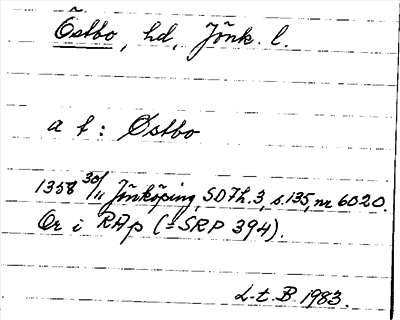 Östbo, hd, Jönk. l.
a t : Østbo
1358 30/11 Jönköping, SD7h.3, s.135, nr 6020.
Or i RAp (=SRP 394).
L.t.B 1983.